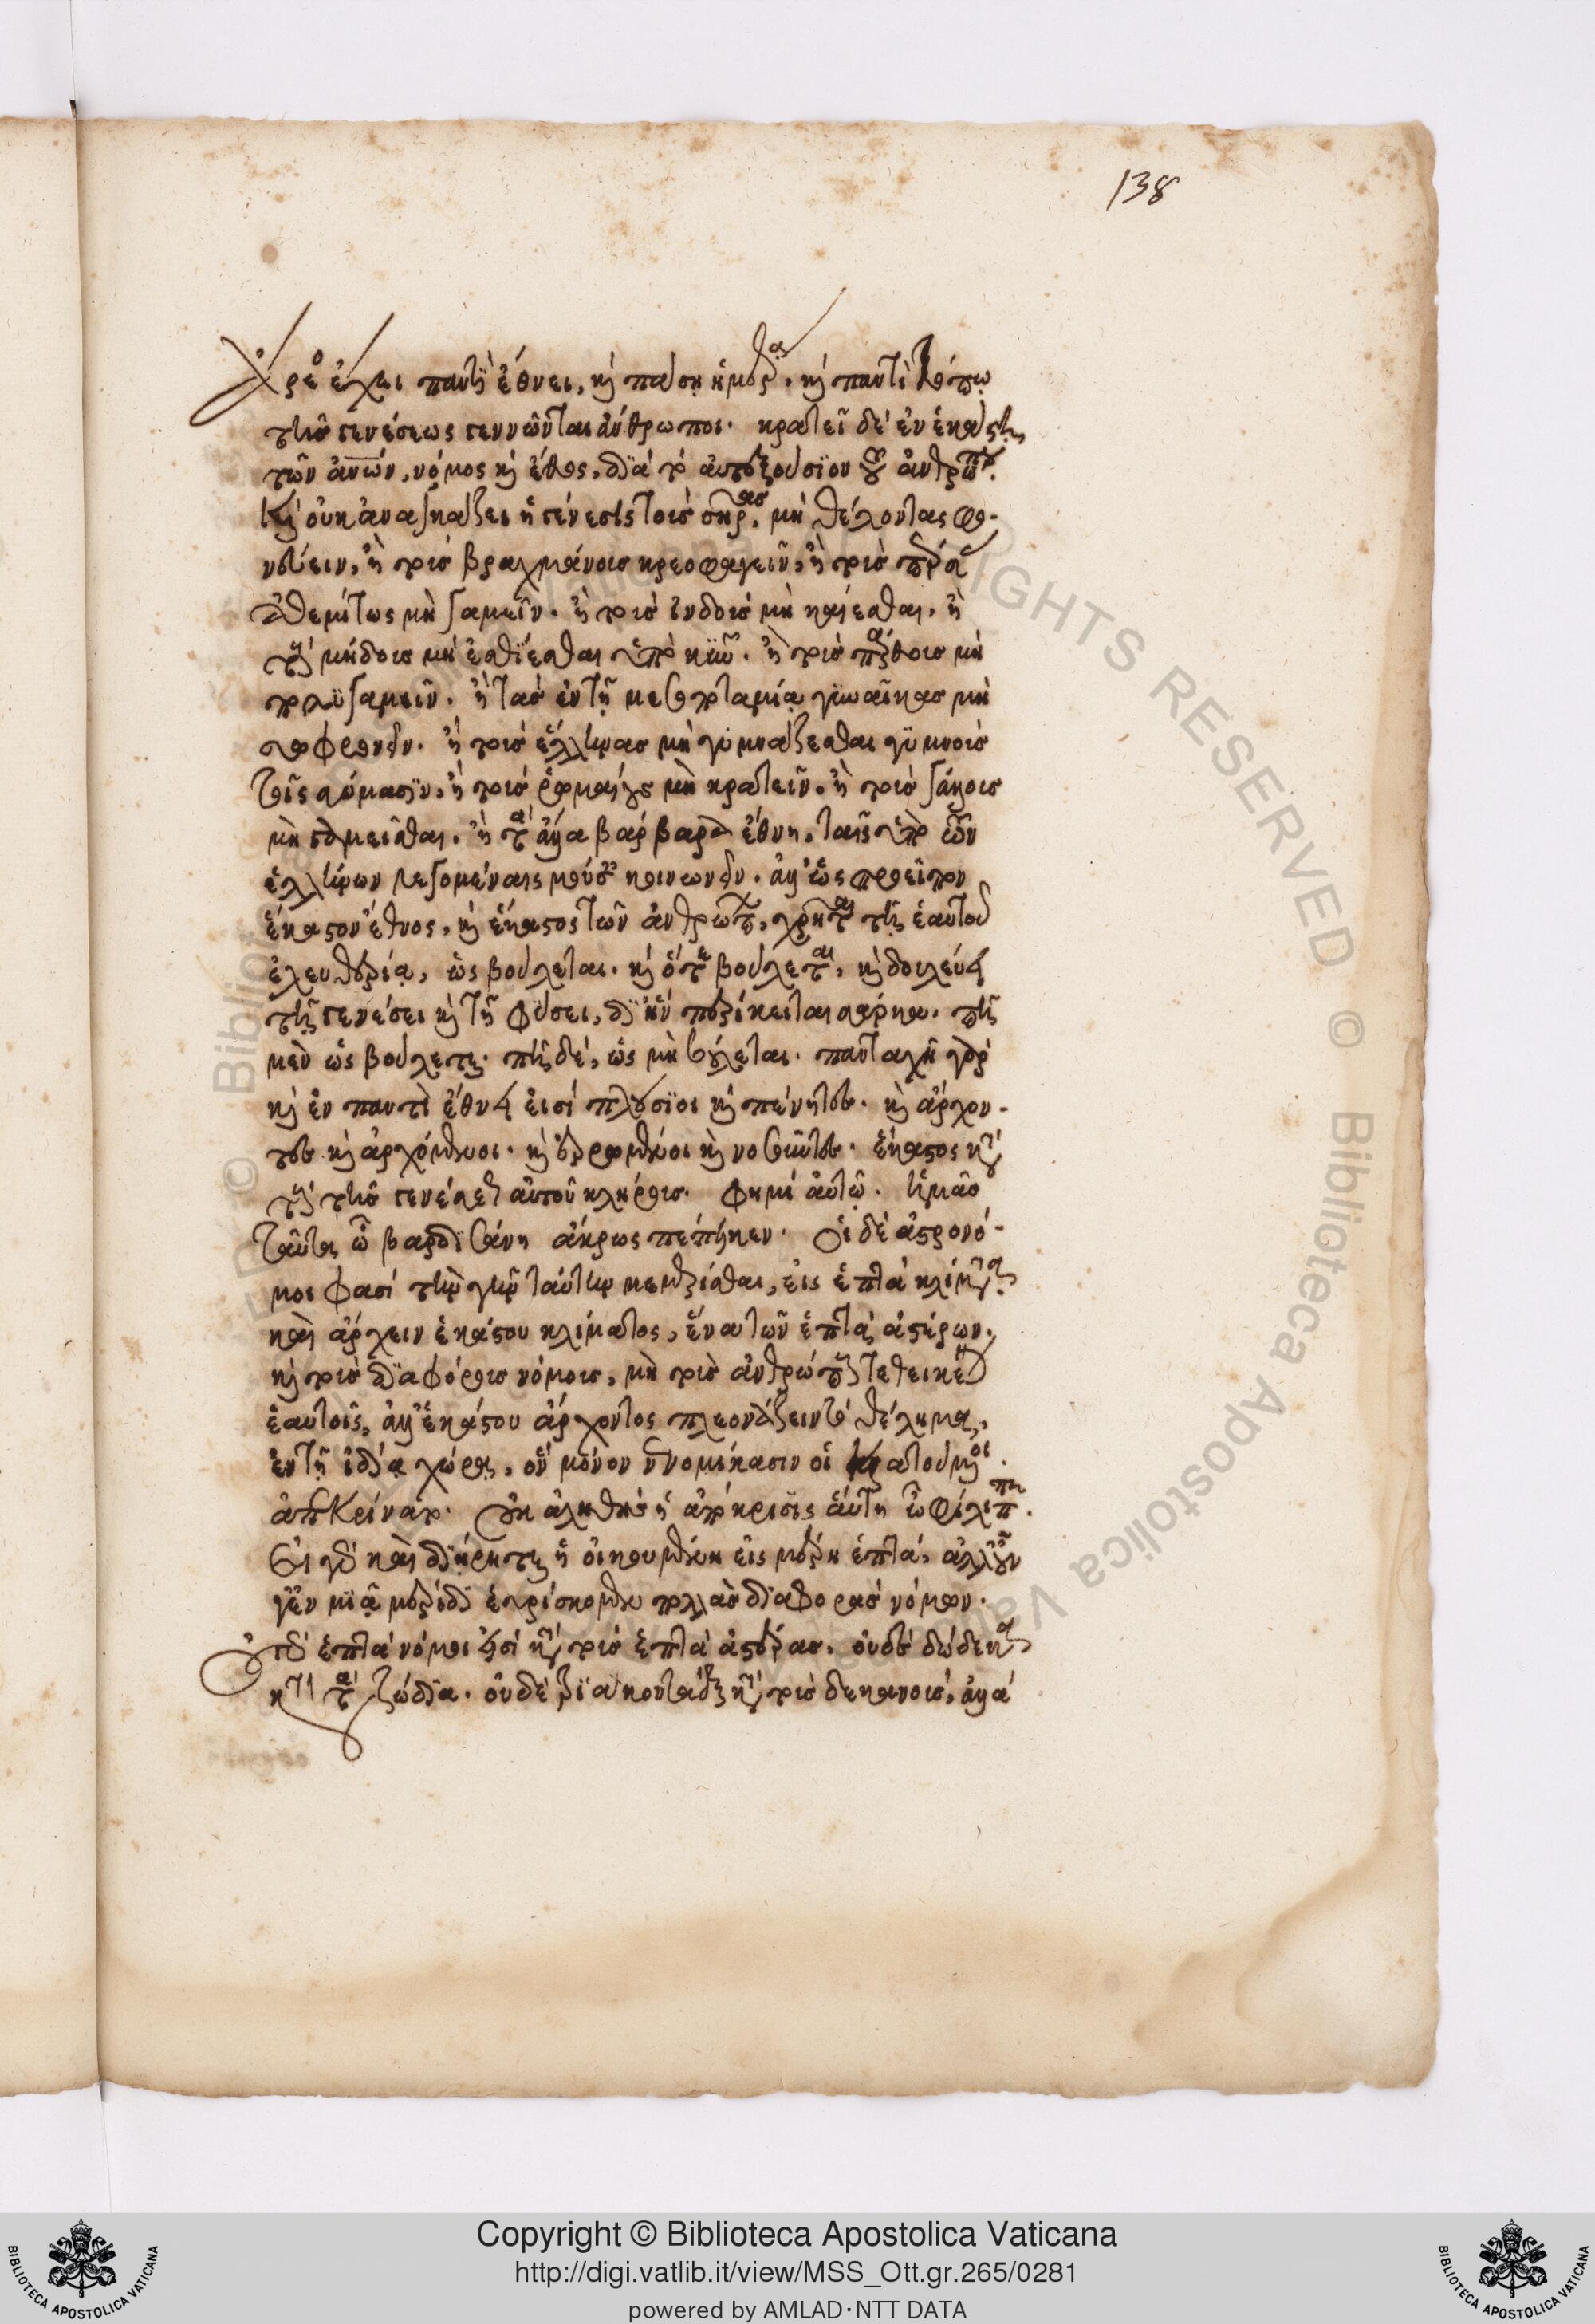 138
χρέος ἔχει παντὶ ἔθνει, καὶ πάσῃ ἡμέρᾳ, καὶ παντὶ τόπῳ
τῆς γενέσεως γεννῶνται ἄνθρωποι. κρατεῖ δὲ ἐν ἑκάστῃ
τῶν ἀνων, νόμος καὶ ἔθος, διὰ τὸ αὐτεξούσιον τοῦ ἀνθρώπου.
καὶ οὐκ ἀναγκάζει ἡ γένεσις τοὺς σῆρας, μὴ θέλοντας φο-
νεύειν, ἢ τοὺς βραχμάνους κρεοφαγεῖν, ἢ τοὺς πέρσας
ἀθεμίτως μὴ γαμεῖν. ἢ τοὺς ἰνδοὺς μὴ καίεσθαι, ἢ
τοὺς μήδους μὴ ἐσθίεσθαι ὑπὸ κυνῶν. ἢ τοὺς πάρθους μὴ
πολυγαμεῖν. ἢ τὰς ἐν τῇ μεσοποταμίᾳ γυναῖκας μὴ
σωφρονεῖν. ἢ τοὺς ἕλληνας μὴ γυμνάζεσθαι γυμνοῖς
τοῖς σώμασιν, ἢ τοὺς ῥωμαίους μὴ κρατεῖν, ἢ τοὺς γάλλους
μὴ γαμεῖσθαι. ἢ τὰ ἄλλα βάρβαρα ἔθνη, ταῖς ὑπὸ τῶν
ἑλλήνων λεγομέναις μούσαις κοινωνεῖν. ἀλλ' ὡς προεῖπον
ἕκαστον ἔθνος, καὶ ἕκαστος τῶν ἀνθρώπων, χρῆται τῇ ἑαυτοῦ
ἐλευθερίᾳ, ὡς βούλεται. καὶ ὅτε βούλεται, καὶ δουλεύει
τῇ γενέσει καὶ τῇ φύσει, δι' ἣν περίκειται σάρκα. πῆ
μὲν ὡς βούλεται. πῆ δὲ, ὡς μὴ βούλεται. πανταχῆ γὰρ
καὶ ἐν παντὶ ἔθνει εἰσὶ πλούσιοι καὶ πένητες. καὶ ἄρχον-
τες καὶ ἀρχόμενοι. καὶ ἐρρωμένοι καὶ νοσοῦντες. ἕκαστος κατὰ
τοὺς τῆς γενέσεως αὐτοῦ κλήρους. φημὶ αὐτῷ. ἡμᾶς
ταῦτα ὦ βαρδισάνη ἄκρως πέπεικεν. οἱ δὲ ἀστρονό-
μοι φασὶ τὴν γῆν ταύτην μεμερίσθαι, εἰς ἑπτὰ κλίματα.
καὶ ἄρχειν ἑκάστου κλίματος, ἕνα τῶν ἑπτὰ ἀστέρων,
καὶ τοὺς διαφόρους νόμους, μὴ τοὺς ἀνθρώπους τεθεικέναι
ἑαυτοῖς, ἀλλ' ἑκάστου ἄρχοντος πλεονάζειν τὸ θέλημα,
ἐν τῇ ἰδίᾳ χώρᾳ, ὃν νόμον νενομίκασιν οἱ κρατούμενοι.
ἀπεκρίνατο. οὐκ ἀληθὴς ἡ ἀπόκρισις αὕτη ὦ φίλιππε.
εἰ γὰρ καὶ διῄρηται ἡ οἰκουμένη εἰς μέρη ἑπτὰ, ἀλλ' οὖν
γε ἐν μιᾷ μερίδι εὑρίσκομεν πολλὰς διαφορὰς νόμων.
οὐδὲ ἑπτὰ νόμοι εἰσὶ κατὰ τοὺς ἑπτὰ ἀστέρας. οὐδὲ δώδεκα
κατὰ τὰ ζώδια. οὐδὲ τριακονταὲξ κατὰ τοὺς δεκανοὺς, ἀλλὰ
Copyright © Biblioteca Apostolica Vaticana
http://digi.vatlib.it/view/MSS_Ott.gr.265/0281
powered by AMLAD·NTT DATA